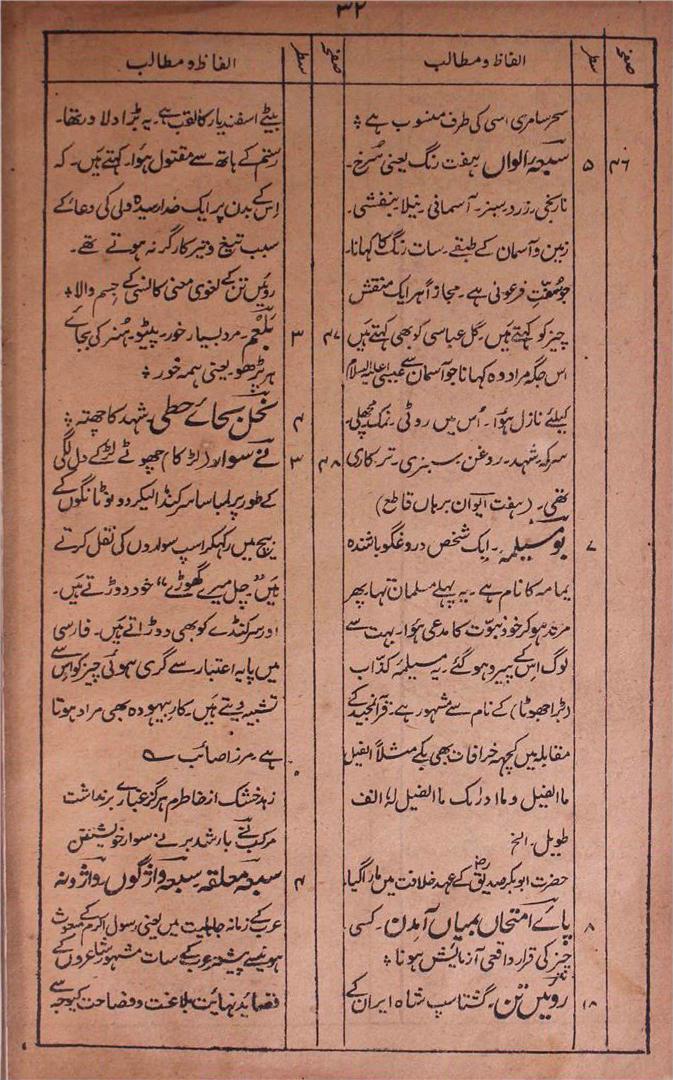 ۳۲
صفحہ سطر الفاظ و مطالب
سحر سامری اسی کی طرف منسوب ہے ؞
۴۶ ۵ سبعہ الواں ہفت رنگ یعنی سُرخ۔
نارنجی۔ زرد۔ سبز۔ آسمانی۔ نیلا۔ بنفشی۔
زمین و آسمان کے طبقے۔ سات رنگ کا کہانا۔
جو صُنعتِ فرعونی ہے۔ مجازاً ہر ایک منقش
چیز کو کہتے ہیں۔ گل عباسی کو بھی کہتے ہیں
اس جگہ مراد وہ کہانا جو آسمان سے عیسیٰ علیہ السلام
کیلئے نازل ہوا۔ اُس میں روٹی۔ نمک۔ مچھلی۔
سرکہ۔ شہد۔ روغن۔ سبزی۔ ترکاری
تھی۔ (ہفت ایوان برہان قاطع)
۷ بو مسیلمہ۔ ایک شخص دروغگو باشندہ
یمامہ کا نام ہے۔ یہ پہلے مسلمان تہا پھر
مرتد ہو کر خود نبوّت کا مدعی ہوا۔ بہت سے
لوگ اس کے پیرو ہو گئے۔ یہ مسیلمہ کذّاب
(بڑا جھوٹا) کے نام سے مشہور ہے۔ قرآنمجید کے
مقابلہ میں کچھہ خرافات بھی بکے مثلاً الفیل
ما الفیل و ما ادراک ما الفیل لہٗ الف
طویل۔ الخ
حضرت ابوبکر صدیقؓ کے عہد خلافت میں مارا گیا۔
۸ پائے امتحاں بمیاں آمدن۔ کسی
چیز کی قرار واقعی آزمایش ہونا ؞
۱۸ روئیں تن۔ گشتاسپ شاہ ایران کے
صفحہ سطر الفاظ و مطالب
بیٹے اسفندیار کا لقب ہے۔ یہ بڑا دلاور تھا۔
رستم کے ہاتھ سے مقتول ہوا۔ کہتے ہیں۔ کہ
اس کے بدن پر ایک خدا رسیدہ ولی کی دعا کے
سبب تیغ و تیر کارگر نہ ہوتے تھے۔
روئیں تن کے لغوی معنی کانسی کے جسم والا ؞
۴۷ ۳ بلعم۔ مرد بسیار خور۔ پیٹو۔ ہُنر کی بجائے
ہر پڑھو یعنی ہمہ خور ؞
۴ نحل بجائے حطی۔ شہد کا چھتہ ؞
۴۸ ۳ نے سوار (لڑکا) چھوٹے لڑکے دل لگی
کے طور پر لمبا سا سرکنڈا لیکر دونو ٹانگوں کے
بیچ میں رکہکر اسپ سواروں کی نقل کرتے
ہیں "چل میرے گھوڑے" خود دوڑتے ہیں۔
اور سرکنڈے کو بھی دوڑاتے ہیں۔ فارسی
میں پایہ اعتبار سے گری ہوئی چیز کو اس سے
تشبیہ دیتے ہیں۔ کار بیہودہ بھی مراد ہوتا
ہے۔ مرزا صائب ؎
زہد خشک از خاطرم ہرگز غبارے برنداشت
مرکب نے بار شد بر نے سوار خویشتن
۴ سبعہ معلقہ سبعہ واژگوں۔ واژونہ
عرب کے زمانہ جاہلیت میں یعنی رسول اکرم کے مبعوث
ہونیسے پیشتر عرب کے سات مشہور شاعروں کے
قصائد نہائت بلاغت و فصاحت کیوجہ سے